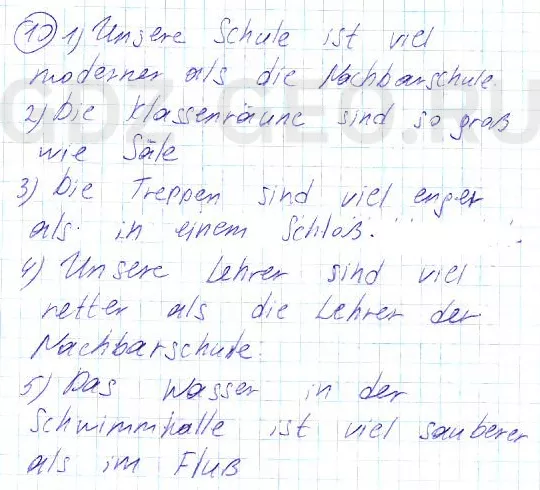 10 1) Unsere Schule ist viel
moderner als die Nachbarschule.
2) Die Klassenräume sind so groß
wie Säle
3) Die Treppen sind viel enger
als in einem Schloß.
4) Unsere Lehrer sind viel
netter als die Lehrer der
Nachbarschule.
5) Das Wasser in der
Schwimmhalle ist viel sauberer
als im Fluß